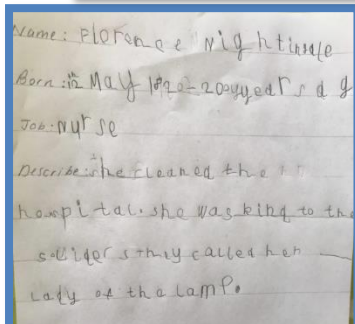 Name: Florence Nightingale
Born: 12 May 1820-200 years ag
Job: Nurse
Describe: she cleaned the
hospital. she was kind to the
soliders they called her
Lady of the lamp.